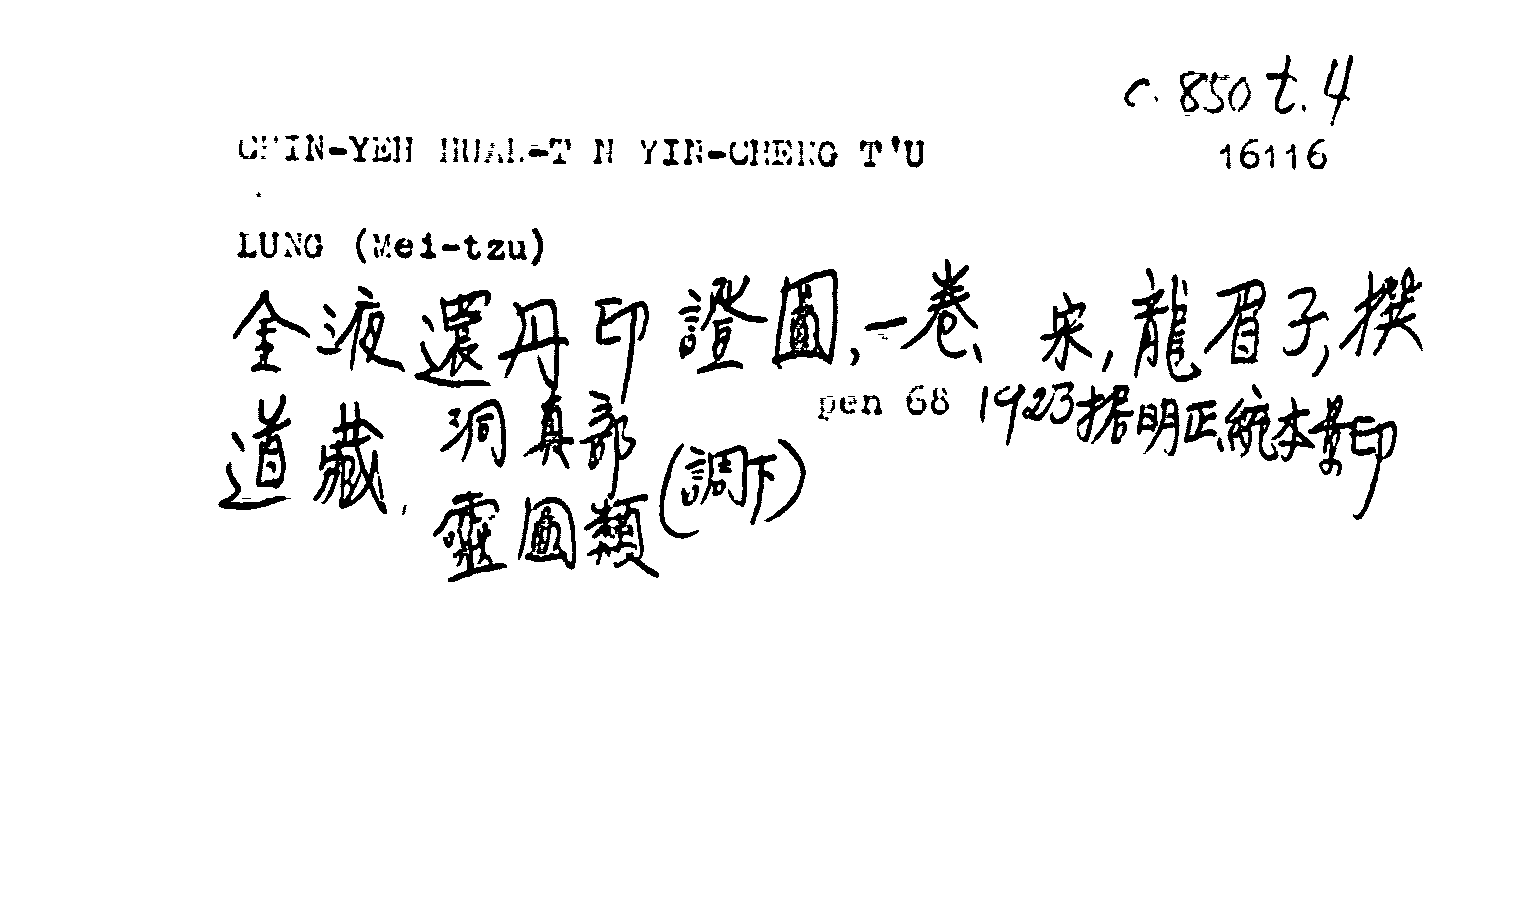 c. 850 t. 4
CHIN-YEH HUAN-TAN YIN-CHENG T'U 16116
LUNG (Mei-tzu)
金液還丹印證圖,一卷、宋,龍眉子,撰
道藏, 洞真部 pen 68 1923据明正統本景印
靈圖類 (調下)